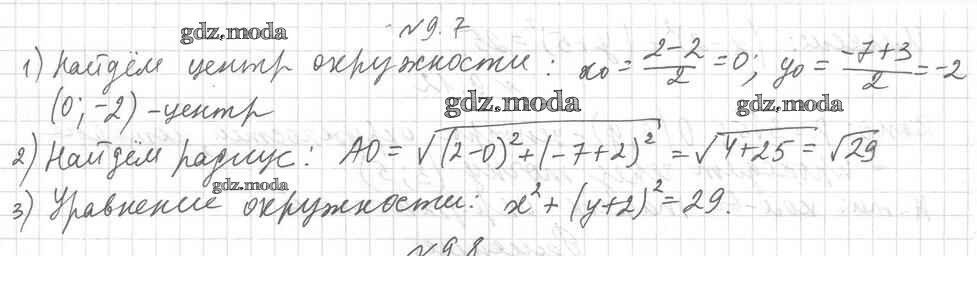 №9.7
gdz.moda
1) Найдём центр окружности: x₀ = (2-2)/2 = 0; y₀ = (-7+3)/2 = -2
(0; -2) - центр
gdz.moda gdz.moda
2) Найдём радиус: AO = √((2-0)²+(-7+2)²) = √(4+25) = √29
gdz.moda
3) Уравнение окружности: x² + (y+2)² = 29.
№9.8